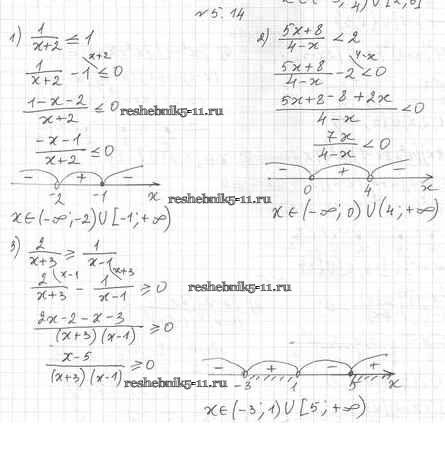 x ∈ (-3; 4) ∪ [2; 6]
№ 5.14
1) 1/(x+2) ≤ 1
1/(x+2) - 1 \x+2 ≤ 0
(1-x-2)/(x+2) ≤ 0
(-x-1)/(x+2) ≤ 0
- + -
-2 -1 x
x ∈ (-∞; -2) ∪ [-1; +∞)
2) (5x+8)/(4-x) < 2
(5x+8)/(4-x) - 2 \4-x < 0
(5x+8-8+2x)/(4-x) < 0
7x/(4-x) < 0
- + -
0 4 x
x ∈ (-∞; 0) ∪ (4; +∞)
3) 2/(x+3) ≥ 1/(x-1)
2/(x+3) \x-1 - 1/(x-1) \x+3 ≥ 0
(2x-2-x-3)/((x+3)(x-1)) ≥ 0
(x-5)/((x+3)(x-1)) ≥ 0
- + - +
-3 1 5 x
x ∈ (-3; 1) ∪ [5; +∞)
reshebnik5-11.ru
reshebnik5-11.ru
reshebnik5-11.ru
reshebnik5-11.ru